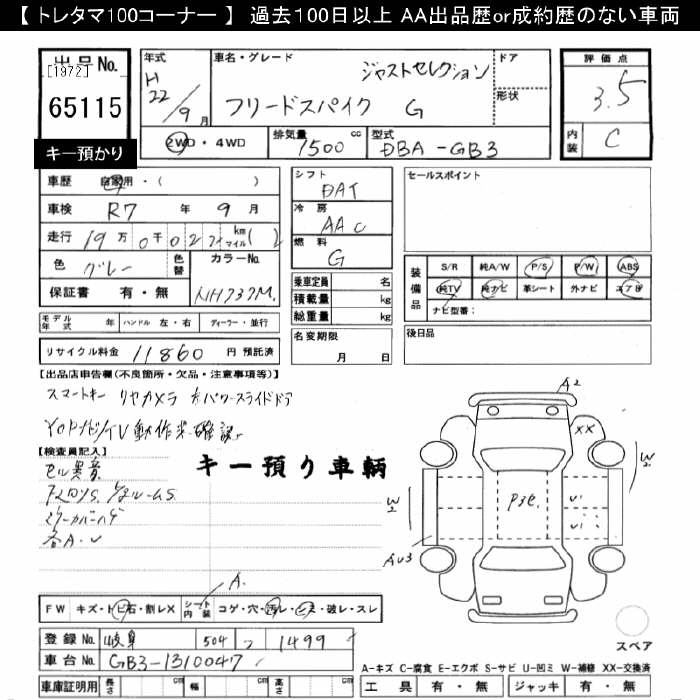 【 トレタマ100コーナー 】 過去100日以上 AA出品歴or成約歴のない車両
出品No.
[1972]
65115
キー預かり
年式 H 22/9月
車名・グレード ジャストセレクション
フリードスパイク G
ドア
形状
評価点
3.5
内装 C
2WD・4WD 排気量 1500 cc 型式 DBA-GB3
車歴 自家用・( )
車検 R7 年 9 月
走行 19万0千0 2 km マイル( )
色 グレー 色替 カラーNo.
保証書 有・無 NH737M
シフト DAT
冷房 AAC
燃料 G
乗車定員 名
積載量 kg
総重量 kg
セールスポイント
装備品 S/R 純A/W P/S P/W ABS
純TV 純ナビ 革シート 外ナビ エアB
ナビ型番:
モデル年式 年 ハンドル 左・右 ディーラー・並行
名変期限 月 日
後日品
リサイクル料金 11860 円 預託済
【出品店申告欄(不良箇所・欠品・注意事項等)】
スマートキー リヤカメラ 左パワースライドドア
ナビ/TV動作未確認
【検査員記入】
セル異音
キー預り車輌
ミラーカバーハゲ
各A.U
A2
XX
W2
W2
P3C.
AU3
A.
FW キズ・トビ石・割レX シート内装 コゲ・穴・汚レ・ ・破レ・スレ
登録No. 岐阜 504 つ 1499
車台No. GB3-1310047
車庫証明用 長さ cm 幅 cm 高さ cm
スペア
A-キズ C-腐食 E-エクボ S-サビ U-凹ミ W-補修 XX-交換済
工具 有・無 ジャッキ 有・無